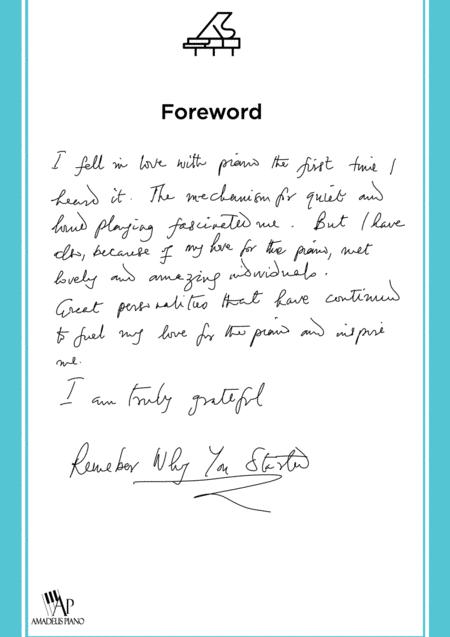 Foreword
I fell in love with piano the first time I
heard it. The mechanism for quiet and
loud playing fascinated me. But I have
also, because of my love for the piano, met
lovely and amazing individuals.
Great personalities that have continued
to fuel my love for the piano and inspire
me.
I am truly grateful
Remeber Why You Started
AP
AMADEUS PIANO